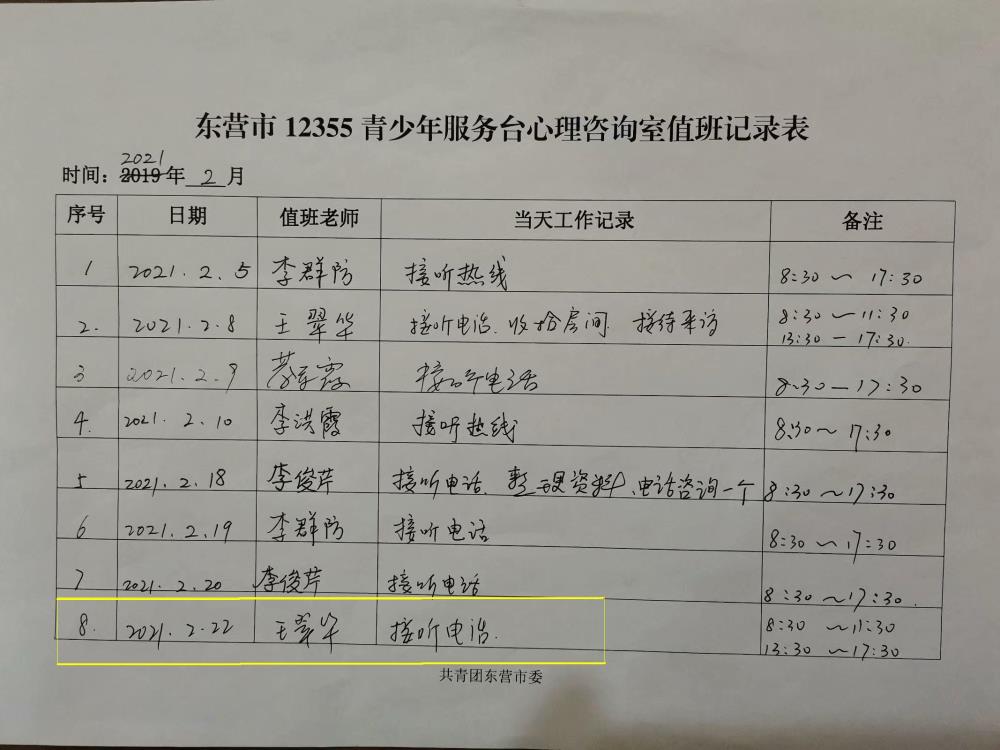 东营市12355青少年服务台心理咨询室值班记录表
2021
时间：2019年 2 月
序号 日期 值班老师 当天工作记录 备注
1 2021.2.5 李群防 接听热线 8:30~17:30
2. 2021.2.8 王翠华 接听电话.收拾房间.接待来访 8:30~11:30
13:30-17:30.
3 2021.2.9 接听电话 8:30-17:30
4. 2021.2.10 李洪霞 接听热线 8:30~17:30
5 2021.2.18 李俊芹 接听电话、整理资料、电话咨询一个 8:30~17:30
6 2021.2.19 李群防 接听电话 8:30~17:30
7 2021.2.20 李俊芹 接听电话 8:30~17:30.
8. 2021.2.22 王翠华 接听电话. 8:30~11:30
13:30~17:30
共青团东营市委